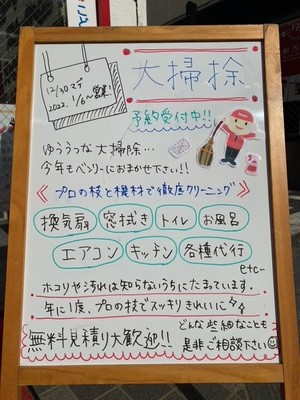 12/30マデ
2022. 1/6〜営業!
大掃除
予約受付中!!
ゆううつな大掃除…
今年もベンリーにおまかせ下さい!!
《プロの技と機材で徹底クリーニング》
換気扇 窓拭き トイレ お風呂
エアコン キッチン 各種代行
etc…
ホコリや汚れは知らないうちにたまっています。
年に1度、プロの技でスッキリきれいに
無料見積り大歓迎!!
どんな些細なことも
是非ご相談下さい